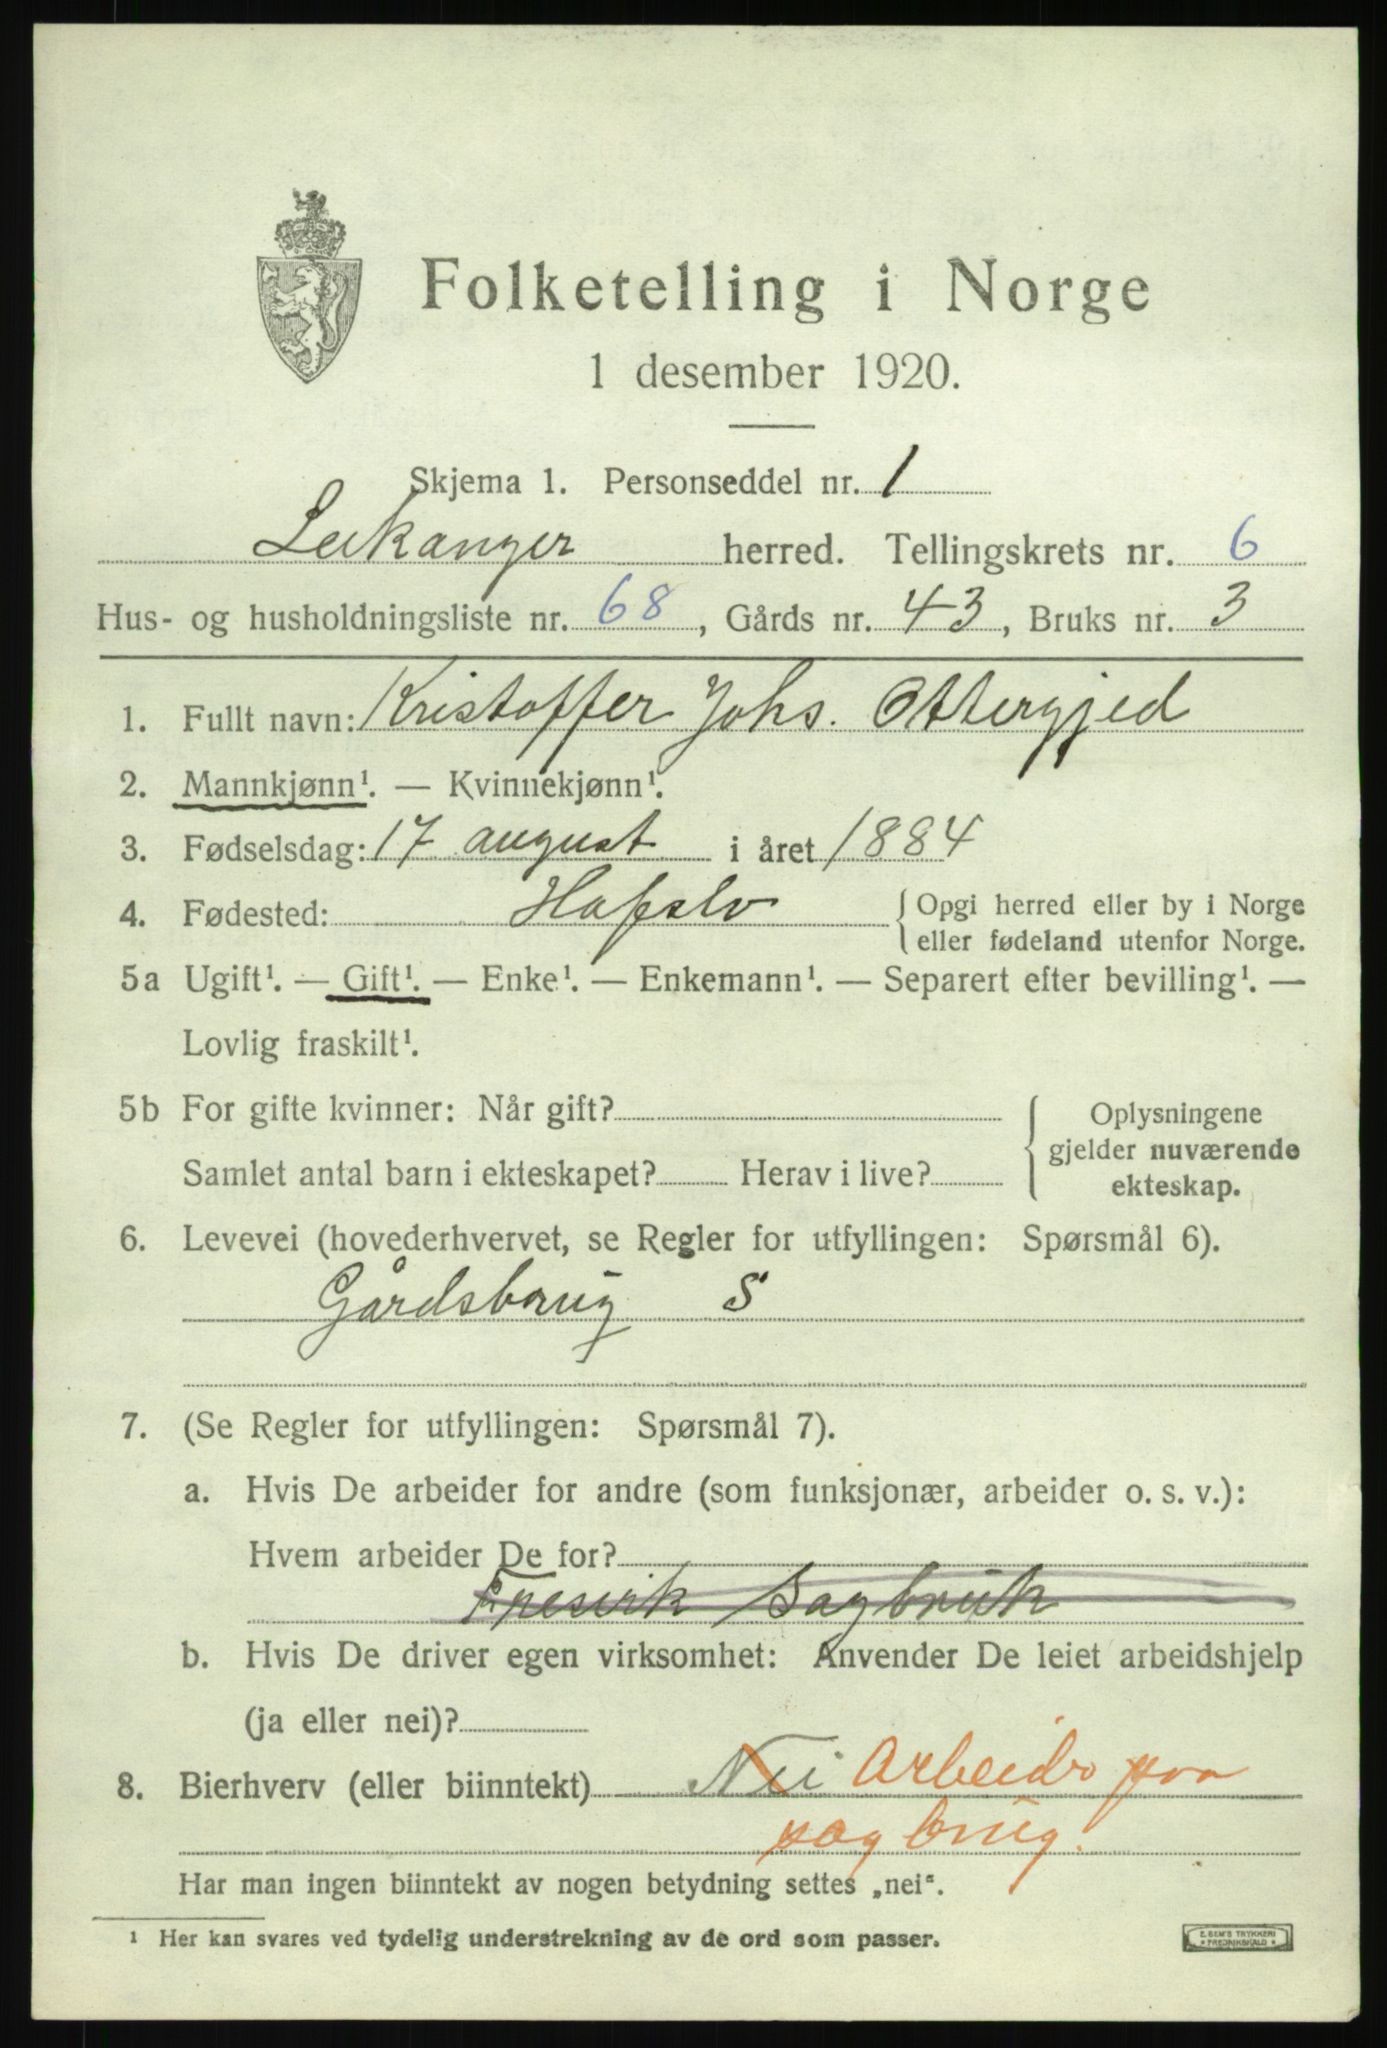 Folketelling i Norge
1 desember 1920.
Skjema 1. Personseddel nr. 1
Leikanger herred. Tellingskrets nr. 6
Hus- og husholdningsliste nr. 68, Gårds nr. 43, Bruks nr. 3
1. Fullt navn: Kristoffer Johs. Ottergjed
2. Mannkjønn¹. — Kvinnekjønn¹.
3. Fødselsdag: 17 august i året 1884
4. Fødested: Hafslo { Opgi herred eller by i Norge
eller fødeland utenfor Norge.
5a Ugift¹. — Gift¹. — Enke¹. — Enkemann¹. — Separert efter bevilling¹. —
Lovlig fraskilt¹.
5b For gifte kvinner: Når gift?
Samlet antal barn i ekteskapet? Herav i live?
Oplysningene
gjelder nuværende
ekteskap.
6. Levevei (hovederhvervet, se Regler for utfyllingen: Spørsmål 6).
Gårdsbrug S
7. (Se Regler for utfyllingen: Spørsmål 7).
a. Hvis De arbeider for andre (som funksjonær, arbeider o. s. v.):
Hvem arbeider De for?
Fresvik Sagbruk
b. Hvis De driver egen virksomhet: Anvender De leiet arbeidshjelp
(ja eller nei)?
8. Bierhverv (eller biinntekt) Nei Arbeider paa
sagbrug.
Har man ingen biinntekt av nogen betydning settes „nei“.
¹ Her kan svares ved tydelig understrekning av de ord som passer.
E. SEM'S TRYKKERI
* FREDRIKSHALD *